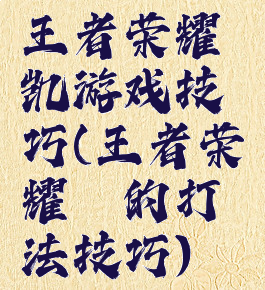 王者荣耀
凯游戏技
巧(王者荣
耀 的打
法技巧)